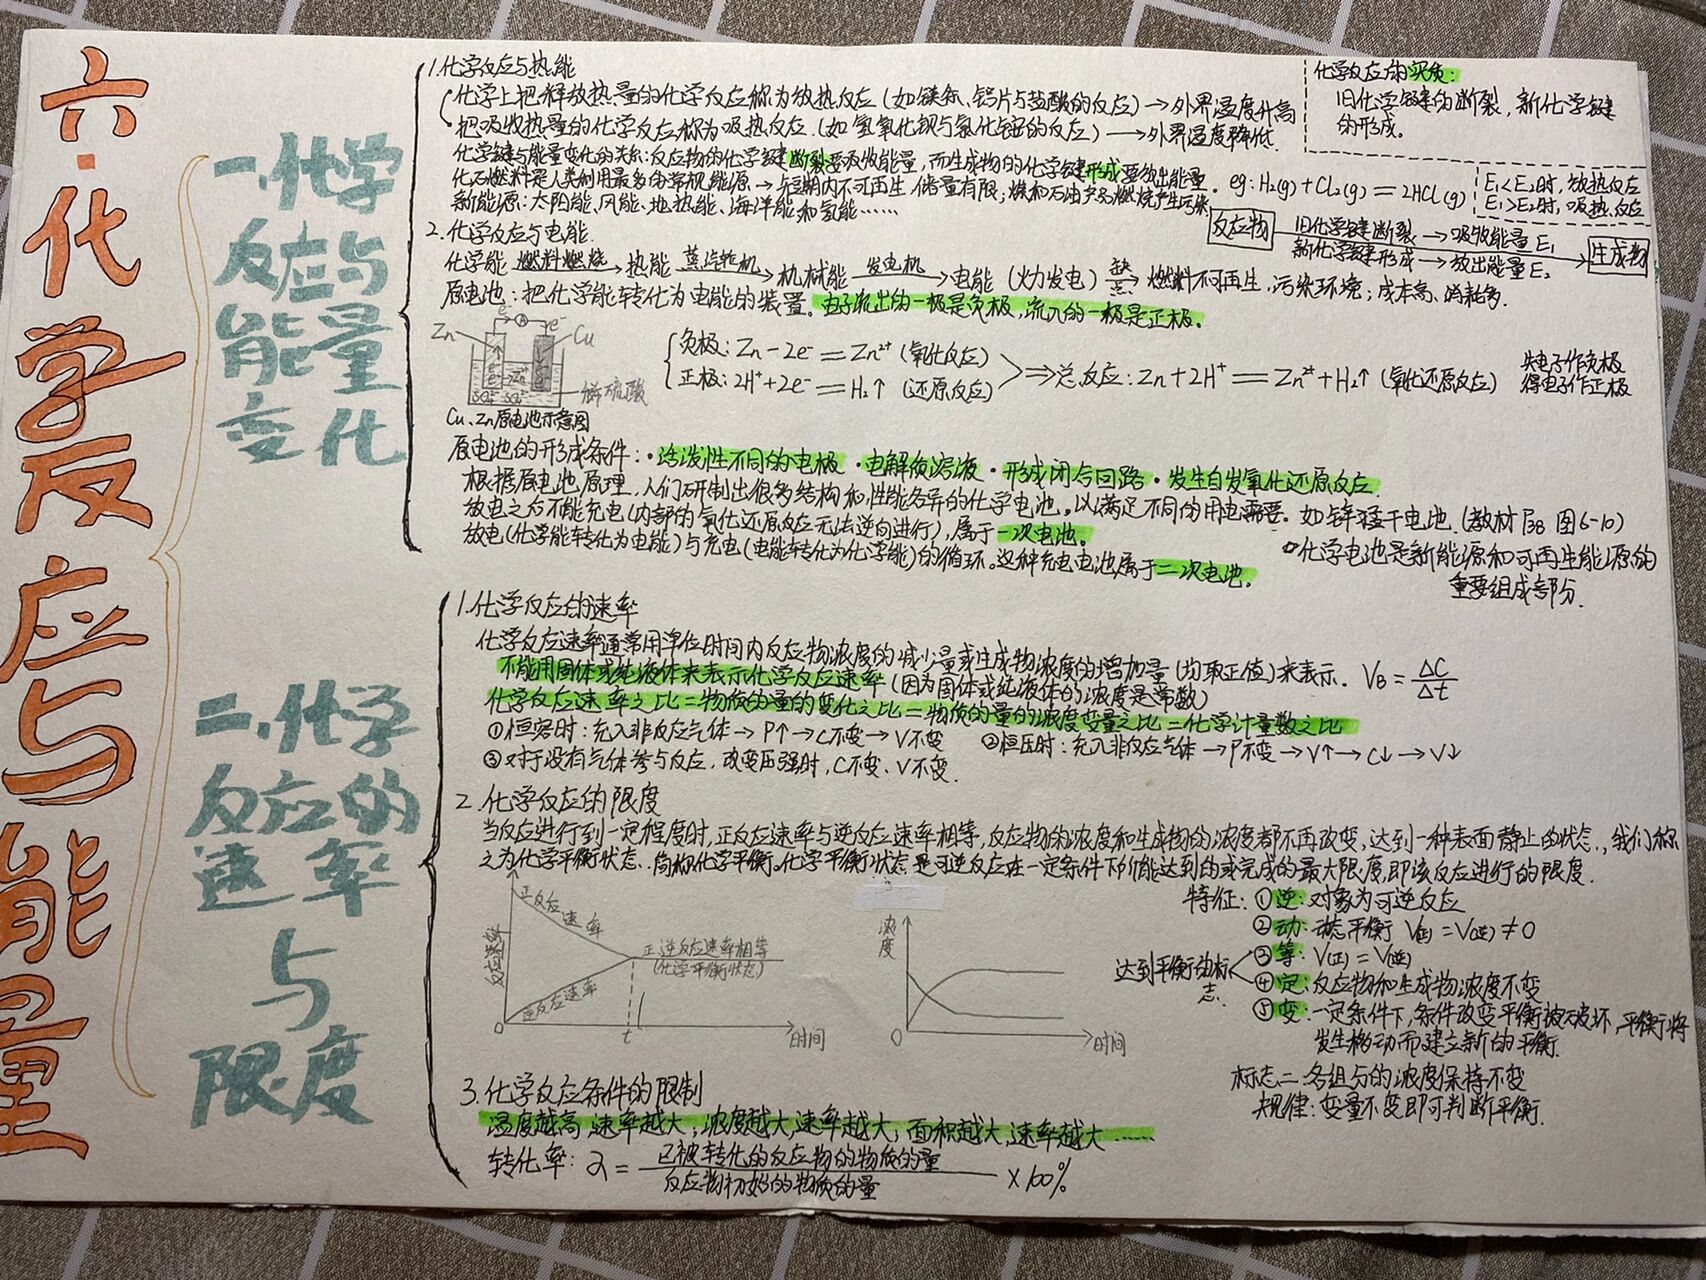 六·化学反应与能量
一、化学
反应与
能量
变化
1.化学反应与热能
化学上把释放热量的化学反应称为放热反应(如镁条、铝片与盐酸的反应)→外界温度升高
把吸收热量的化学反应称为吸热反应.(如氢氧化钡与氯化铵的反应)→外界温度降低.
化学键与能量变化的关系:反应物的化学键断裂要吸收能量,而生成物的化学键形成要放出能量.
化石燃料是人类利用最多的常规能源→短期内不可再生,储量有限;煤和石油产品燃烧产生污染.
新能源:太阳能、风能、地热能、海洋能和氢能……
化学反应的实质:
旧化学键的断裂,新化学键
的形成。
eg:H₂(g)+Cl₂(g)=2HCl(g)
E₁<E₂时,放热反应
E₁>E₂时,吸热反应
反应物
旧化学键断裂→吸收能量E₁
新化学键形成→放出能量E₂
生成物
2.化学反应与电能.
化学能 燃料燃烧→ 热能 蒸汽轮机→ 机械能 发电机→ 电能(火力发电) 缺点→ 燃料不可再生,污染环境;成本高、消耗多.
原电池:把化学能转化为电能的装置。电子流出的一极是负极,流入的一极是正极.
e⁻ A e⁻
Zn Cu
稀硫酸
Cu、Zn原电池示意图
负极:Zn-2e⁻=Zn²⁺(氧化反应)
正极:2H⁺+2e⁻=H₂↑(还原反应)
⇒总反应:Zn+2H⁺=Zn²⁺+H₂↑(氧化还原反应)
失电子作负极
得电子作正极
原电池的形成条件:·活泼性不同的电极·电解质溶液·形成闭合回路·发生自发氧化还原反应.
根据原电池原理,人们研制出很多结构和性能各异的化学电池,以满足不同的用电需要.如锌锰干电池.(教材P38图6-10)
放电之后不能充电(内部的氧化还原反应无法逆向进行),属于一次电池。
放电(化学能转化为电能)与充电(电能转化为化学能)的循环。这种充电电池属于二次电池.
化学电池是新能源和可再生能源的
重要组成部分.
二、化学
反应的
速率
与
限度
1.化学反应的速率
化学反应速率通常用单位时间内反应物浓度的减少量或生成物浓度的增加量(均取正值)来表示. VB=ΔC/Δt
不能用固体或纯液体来表示化学反应速率(因为固体或纯液体的浓度是常数)
化学反应速率之比=物质的量的变化之比=物质的量的浓度变量之比=化学计量数之比
①恒容时:充入非反应气体→P↑→C不变→V不变 ②恒压时:充入非反应气体→P不变→V↑→C↓→V↓
③对于没有气体参与反应,改变压强时,C不变、V不变.
2.化学反应的限度
当反应进行到一定程度时,正反应速率与逆反应速率相等,反应物的浓度和生成物的浓度都不再改变,达到一种表面静止的状态,我们称
之为化学平衡状态,简称化学平衡。化学平衡状态是可逆反应在一定条件下所能达到的或完成的最大限度,即该反应进行的限度.
反应速率
正反应速率
正、逆反应速率相等
(化学平衡状态)
逆反应速率
0 t 时间
浓度
0 时间
特征:①逆:对象为可逆反应
②动:动态平衡 V(正)=V(逆)≠0
③等:V(正)=V(逆)
达到平衡的标志.
④定:反应物和生成物浓度不变
⑤变:一定条件下,条件改变平衡被破坏,平衡将
发生移动而建立新的平衡.
标志二:各组分的浓度保持不变
规律:变量不变即可判断平衡.
3.化学反应条件的限制
温度越高,速率越大;浓度越大,速率越大;面积越大,速率越大……
转化率:α=已被转化的反应物的物质的量/反应物初始的物质的量×100%